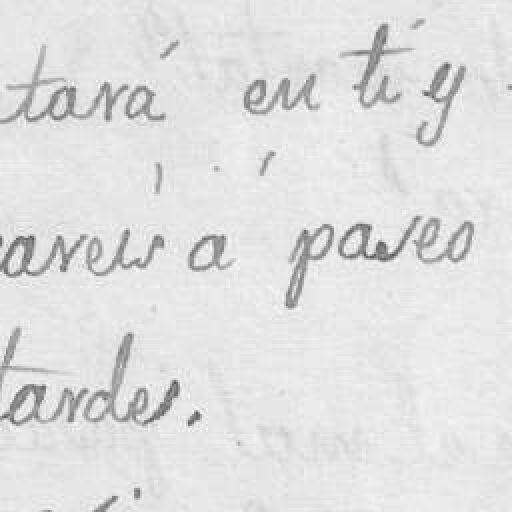 tará en tí y
areis á paseo
tardes.